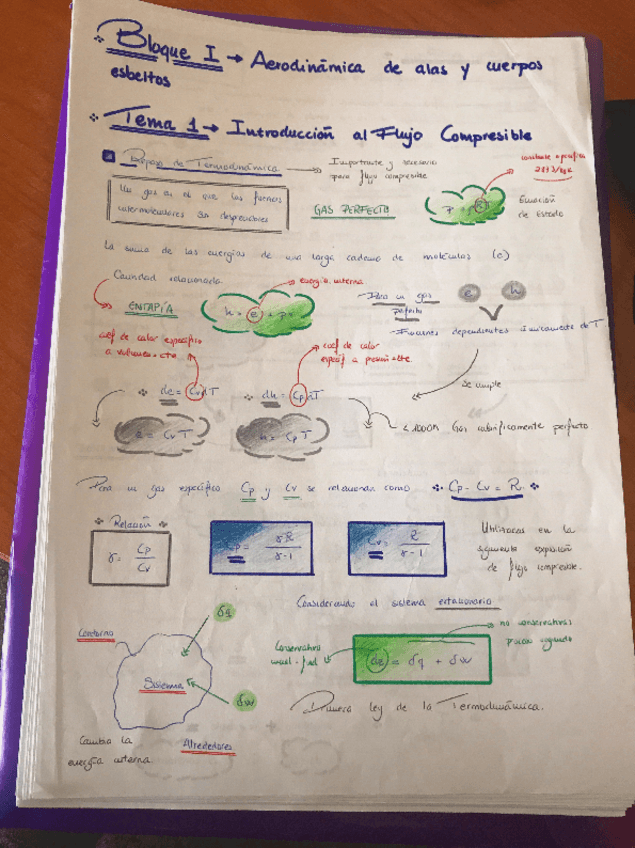 Bloque I → Aerodinámica de alas y cuerpos
esbeltos
Tema 1 → Introducción al Flujo Compresible
Repaso de Termodinámica → Importante y necesario
para flujo compresible
constante específica
Un gas es el que las fuerzas
intermoleculares son despreciables
GAS PERFECTO
Ecuación
de Estado
La suma de las energías de una larga cadena de moléculas (e)
Cantidad relacionada
energía interna
ENTAPÍA
h = e + pv
Para un gas
perfecto
e h
Funciones dependientes únicamente de T
coef de calor específico
a volumen = cte
coef de calor
específ a presión = cte
de = Cv dT
dh = Cp dT
Se cumple
e = Cv T
h = Cp T
< 1000K Gas calóricamente perfecto
Para un gas específico Cp y Cv se relacionan como
Cp - Cv = R
Relación
γ = Cp / Cv
Cp = γR / γ-1
Cv = R / γ-1
Utilizadas en la
siguiente expresión
de flujo compresible.
Considerando el sistema estacionario
δq
no conservativas
Contorno
Conservativa
de = δq + δw
Sistema
δw
Primera ley de la Termodinámica.
Cambia la
energía interna
Alrededores